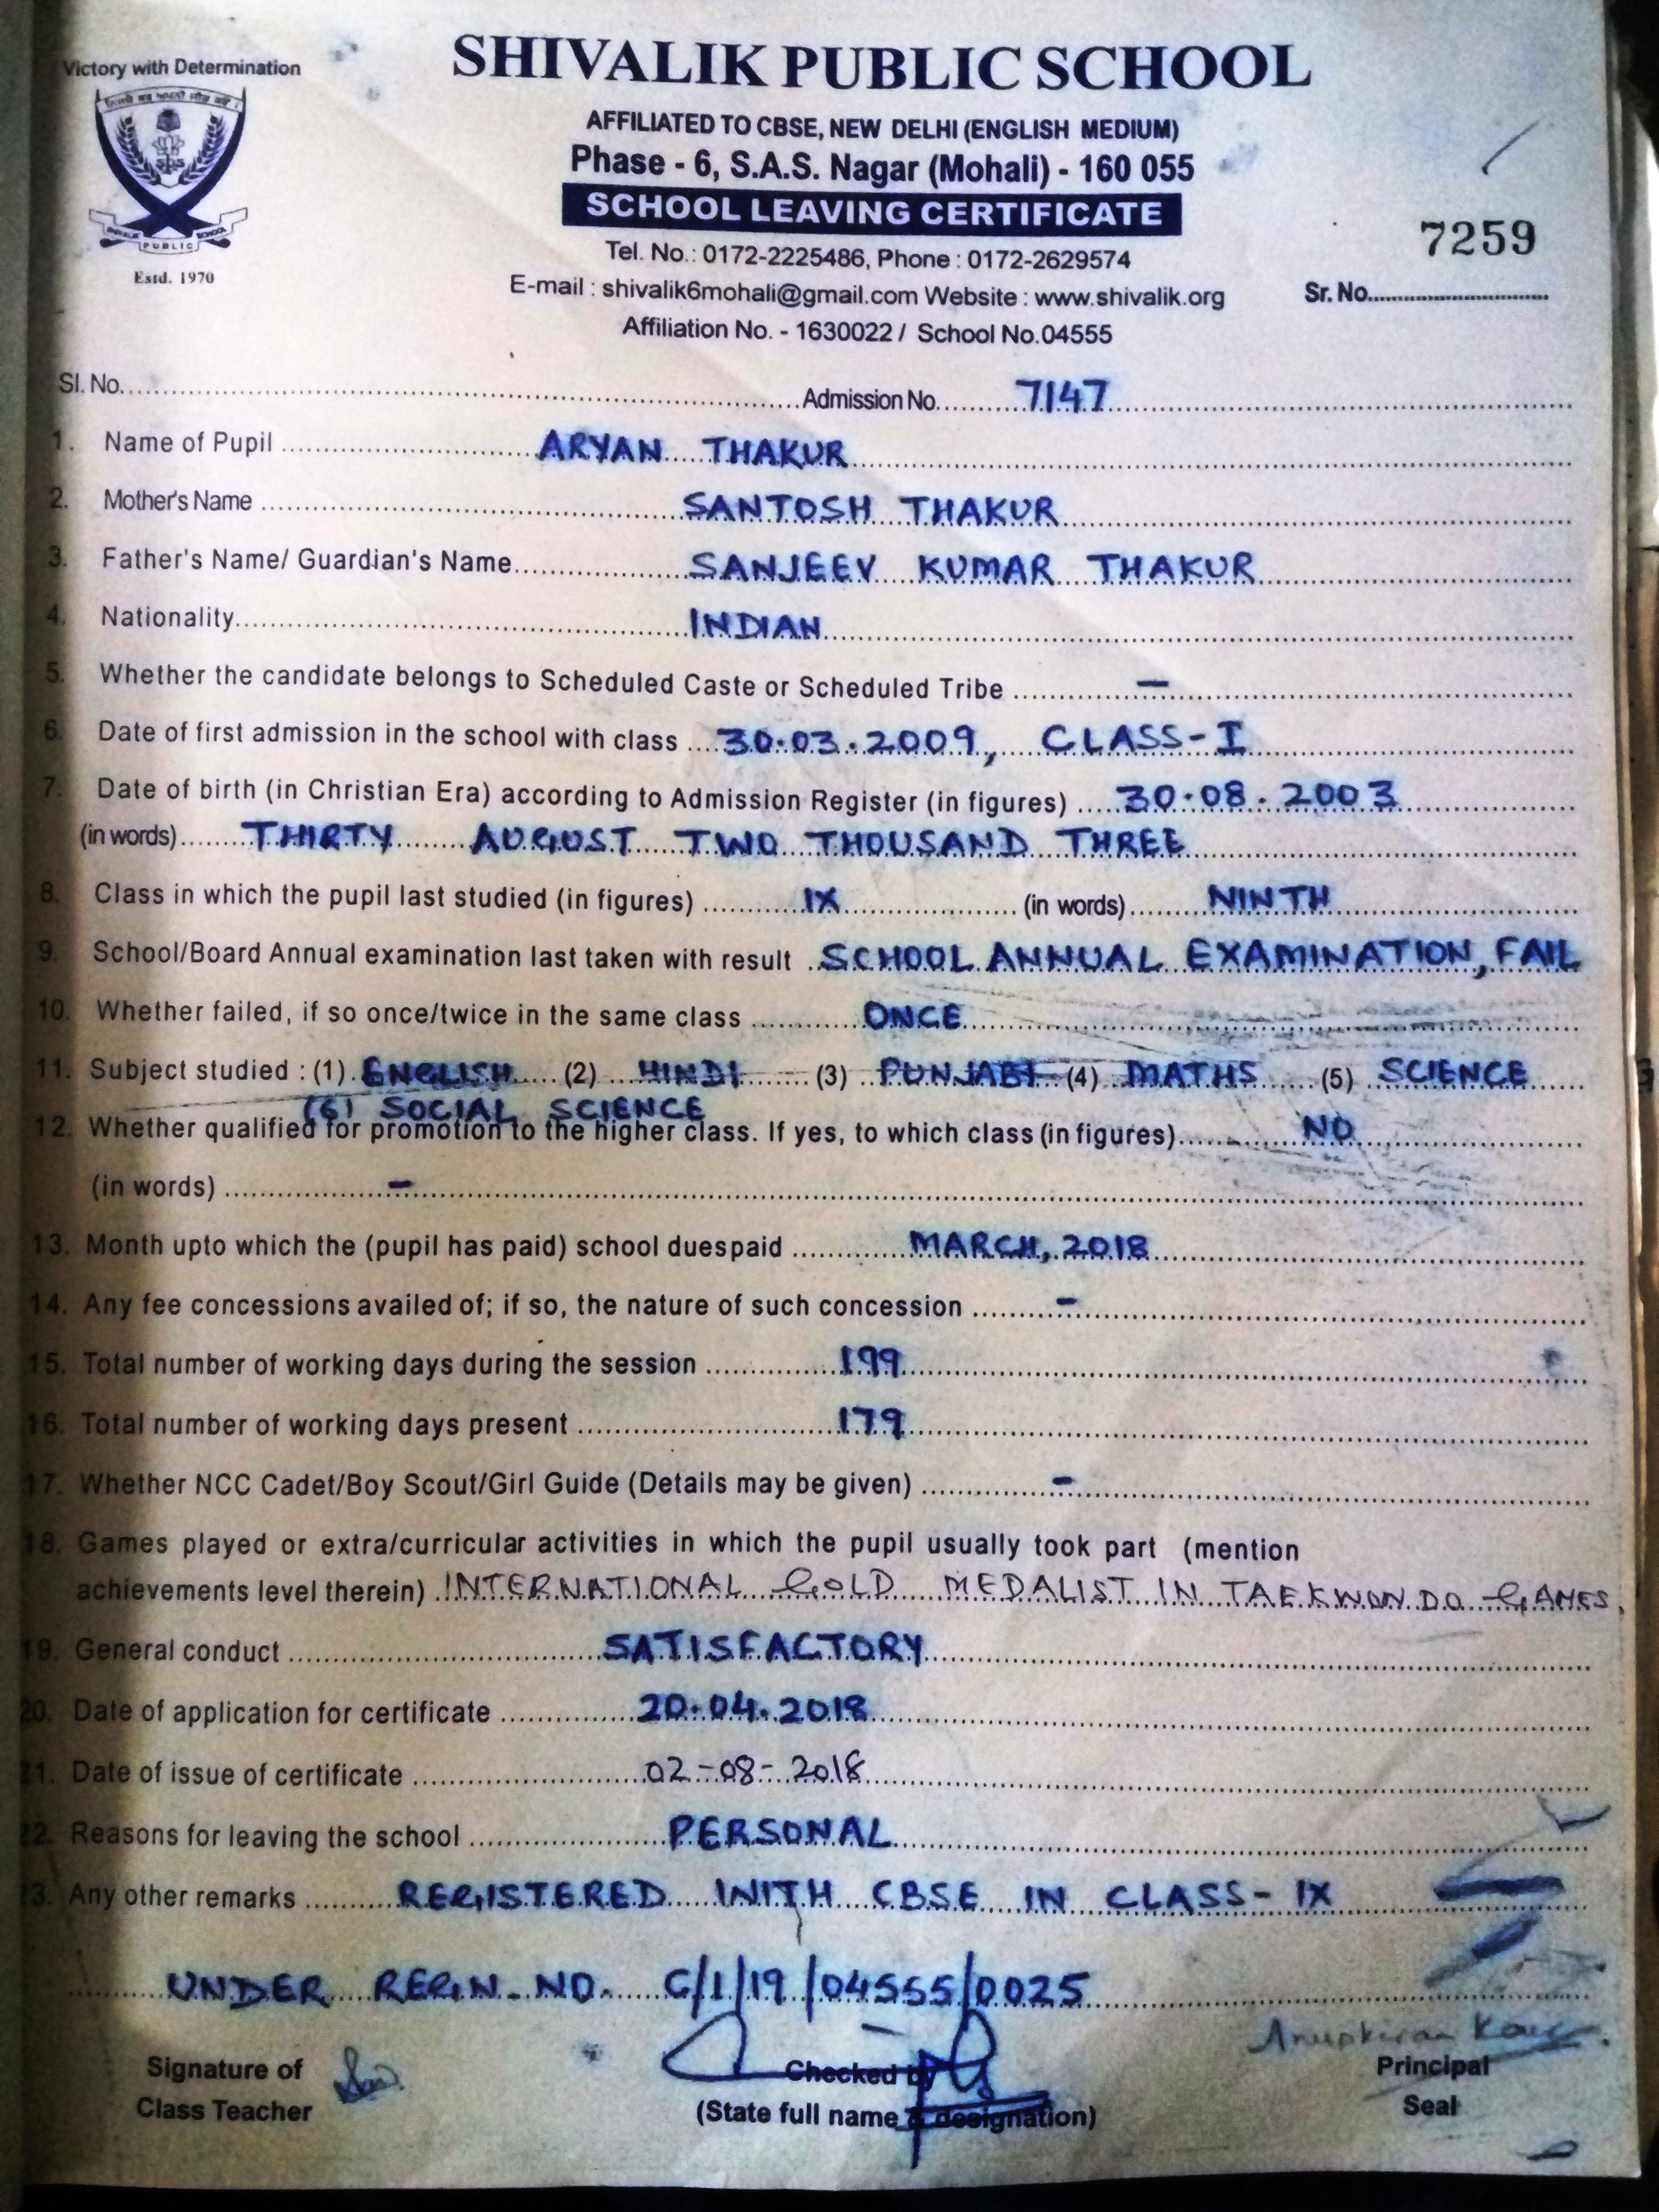 Victory with Determination
SHIVALIK PUBLIC SCHOOL
AFFILIATED TO CBSE, NEW DELHI (ENGLISH MEDIUM)
Phase - 6, S.A.S. Nagar (Mohali) - 160 055
SCHOOL LEAVING CERTIFICATE
SPS
SHIVALIK PUBLIC SCHOOL
Estd. 1970
7259
Tel. No.: 0172-2225486, Phone : 0172-2629574
E-mail : shivalik6mohali@gmail.com Website : www.shivalik.org
Sr. No.
Affiliation No. - 1630022 / School No.04555
Sl. No. Admission No. 7147
1. Name of Pupil ARYAN THAKUR
2. Mother's Name SANTOSH THAKUR
3. Father's Name/ Guardian's Name SANJEEV KUMAR THAKUR
4. Nationality INDIAN
5. Whether the candidate belongs to Scheduled Caste or Scheduled Tribe —
6. Date of first admission in the school with class 30.03.2009, CLASS-I
7. Date of birth (in Christian Era) according to Admission Register (in figures) 30.08.2003
(in words) THIRTY AUGUST TWO THOUSAND THREE
8. Class in which the pupil last studied (in figures) IX (in words) NINTH
9. School/Board Annual examination last taken with result SCHOOL ANNUAL EXAMINATION, FAIL
10. Whether failed, if so once/twice in the same class ONCE
11. Subject studied : (1) ENGLISH (2) HINDI (3) PUNJABI (4) MATHS (5) SCIENCE
(6) SOCIAL SCIENCE
12. Whether qualified for promotion to the higher class. If yes, to which class (in figures) NO
(in words) -
13. Month upto which the (pupil has paid) school duespaid MARCH, 2018
14. Any fee concessions availed of; if so, the nature of such concession -
15. Total number of working days during the session 199
16. Total number of working days present 179
17. Whether NCC Cadet/Boy Scout/Girl Guide (Details may be given) -
18. Games played or extra/curricular activities in which the pupil usually took part (mention
achievements level therein) INTERNATIONAL GOLD MEDALIST IN TAEKWONDO GAMES.
19. General conduct SATISFACTORY
20. Date of application for certificate 20.04.2018
21. Date of issue of certificate 02-08-2018
22. Reasons for leaving the school PERSONAL
23. Any other remarks REGISTERED WITH CBSE IN CLASS-IX
UNDER REGN. NO. C/1/19/04555/0025
Anupkiran Kaur
Signature of
Class Teacher
Checked by
(State full name & designation)
Principal
Seal